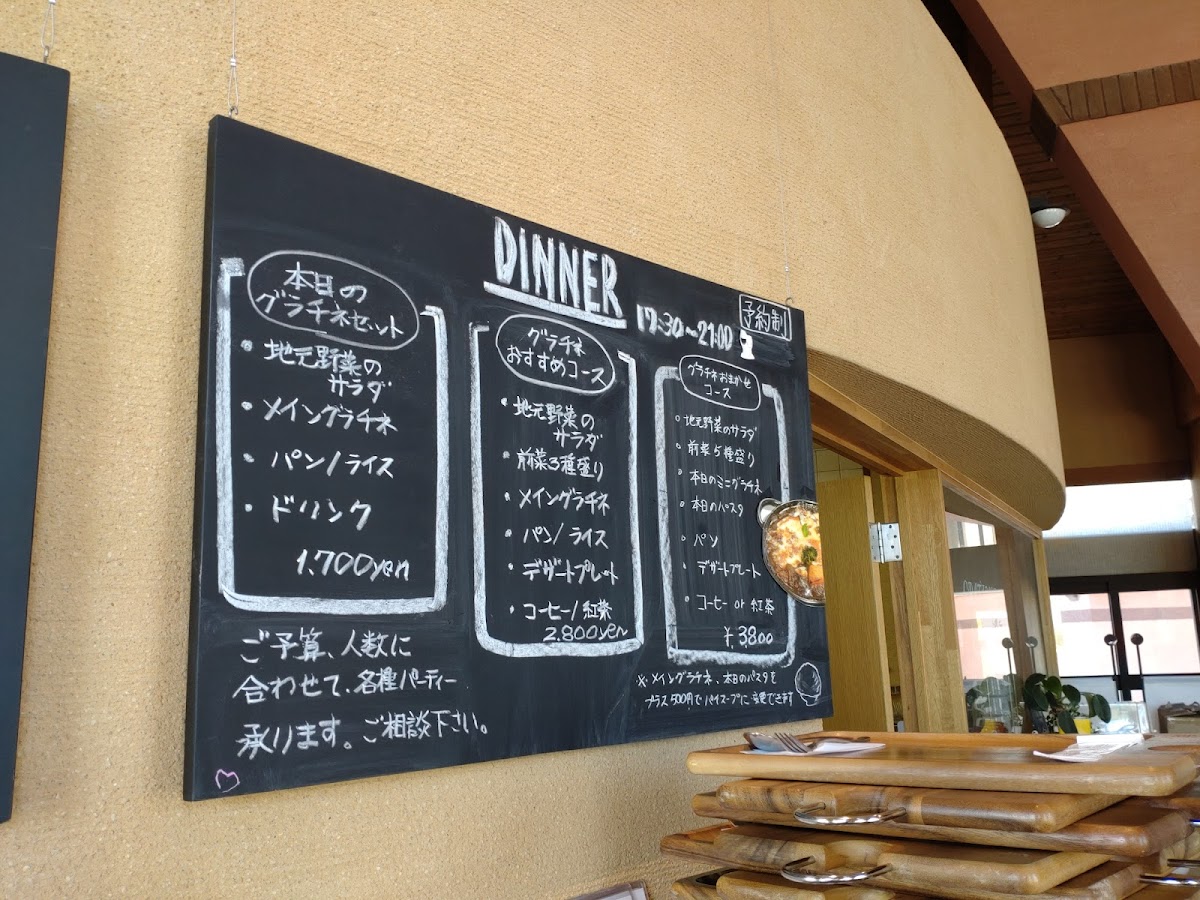 DINNER
17:30~21:00
予約制
本日の
グラチネセット
• 地元野菜の
サラダ
• メイングラチネ
• パン/ライス
• ドリンク
1.700yen
グラチネ
おすすめコース
• 地元野菜の
サラダ
• 前菜3種盛り
• メイングラチネ
• パン/ライス
• デザートプレート
• コーヒー/紅茶
2.800yen
グラチネおまかせ
コース
• 地元野菜のサラダ
• 前菜5種盛り
• 本日のミニグラチネ
• 本日のパスタ
• パン
• デザートプレート
• コーヒー or 紅茶
¥.3800
ご予算、人数に
合わせて、各種パーティー
承ります。ご相談下さい。
※メイングラチネ、本日のパスタを
プラス500円でパイスープに変更できます